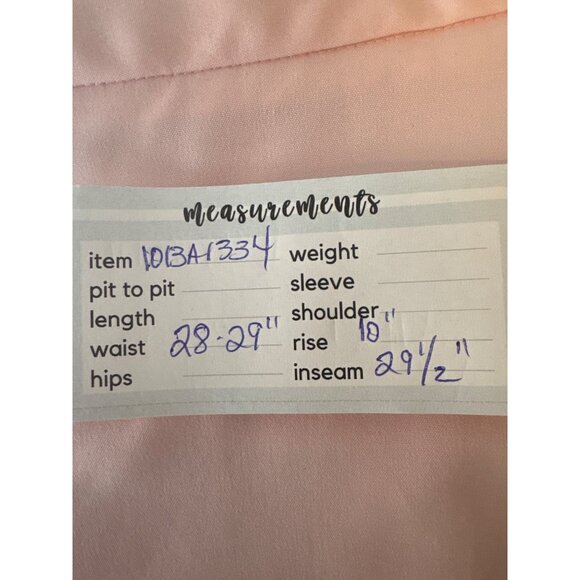 measurements
item 1013A1334
pit to pit
length
waist 28-29"
hips
weight
sleeve
shoulder
rise 10"
inseam 29 1/2"